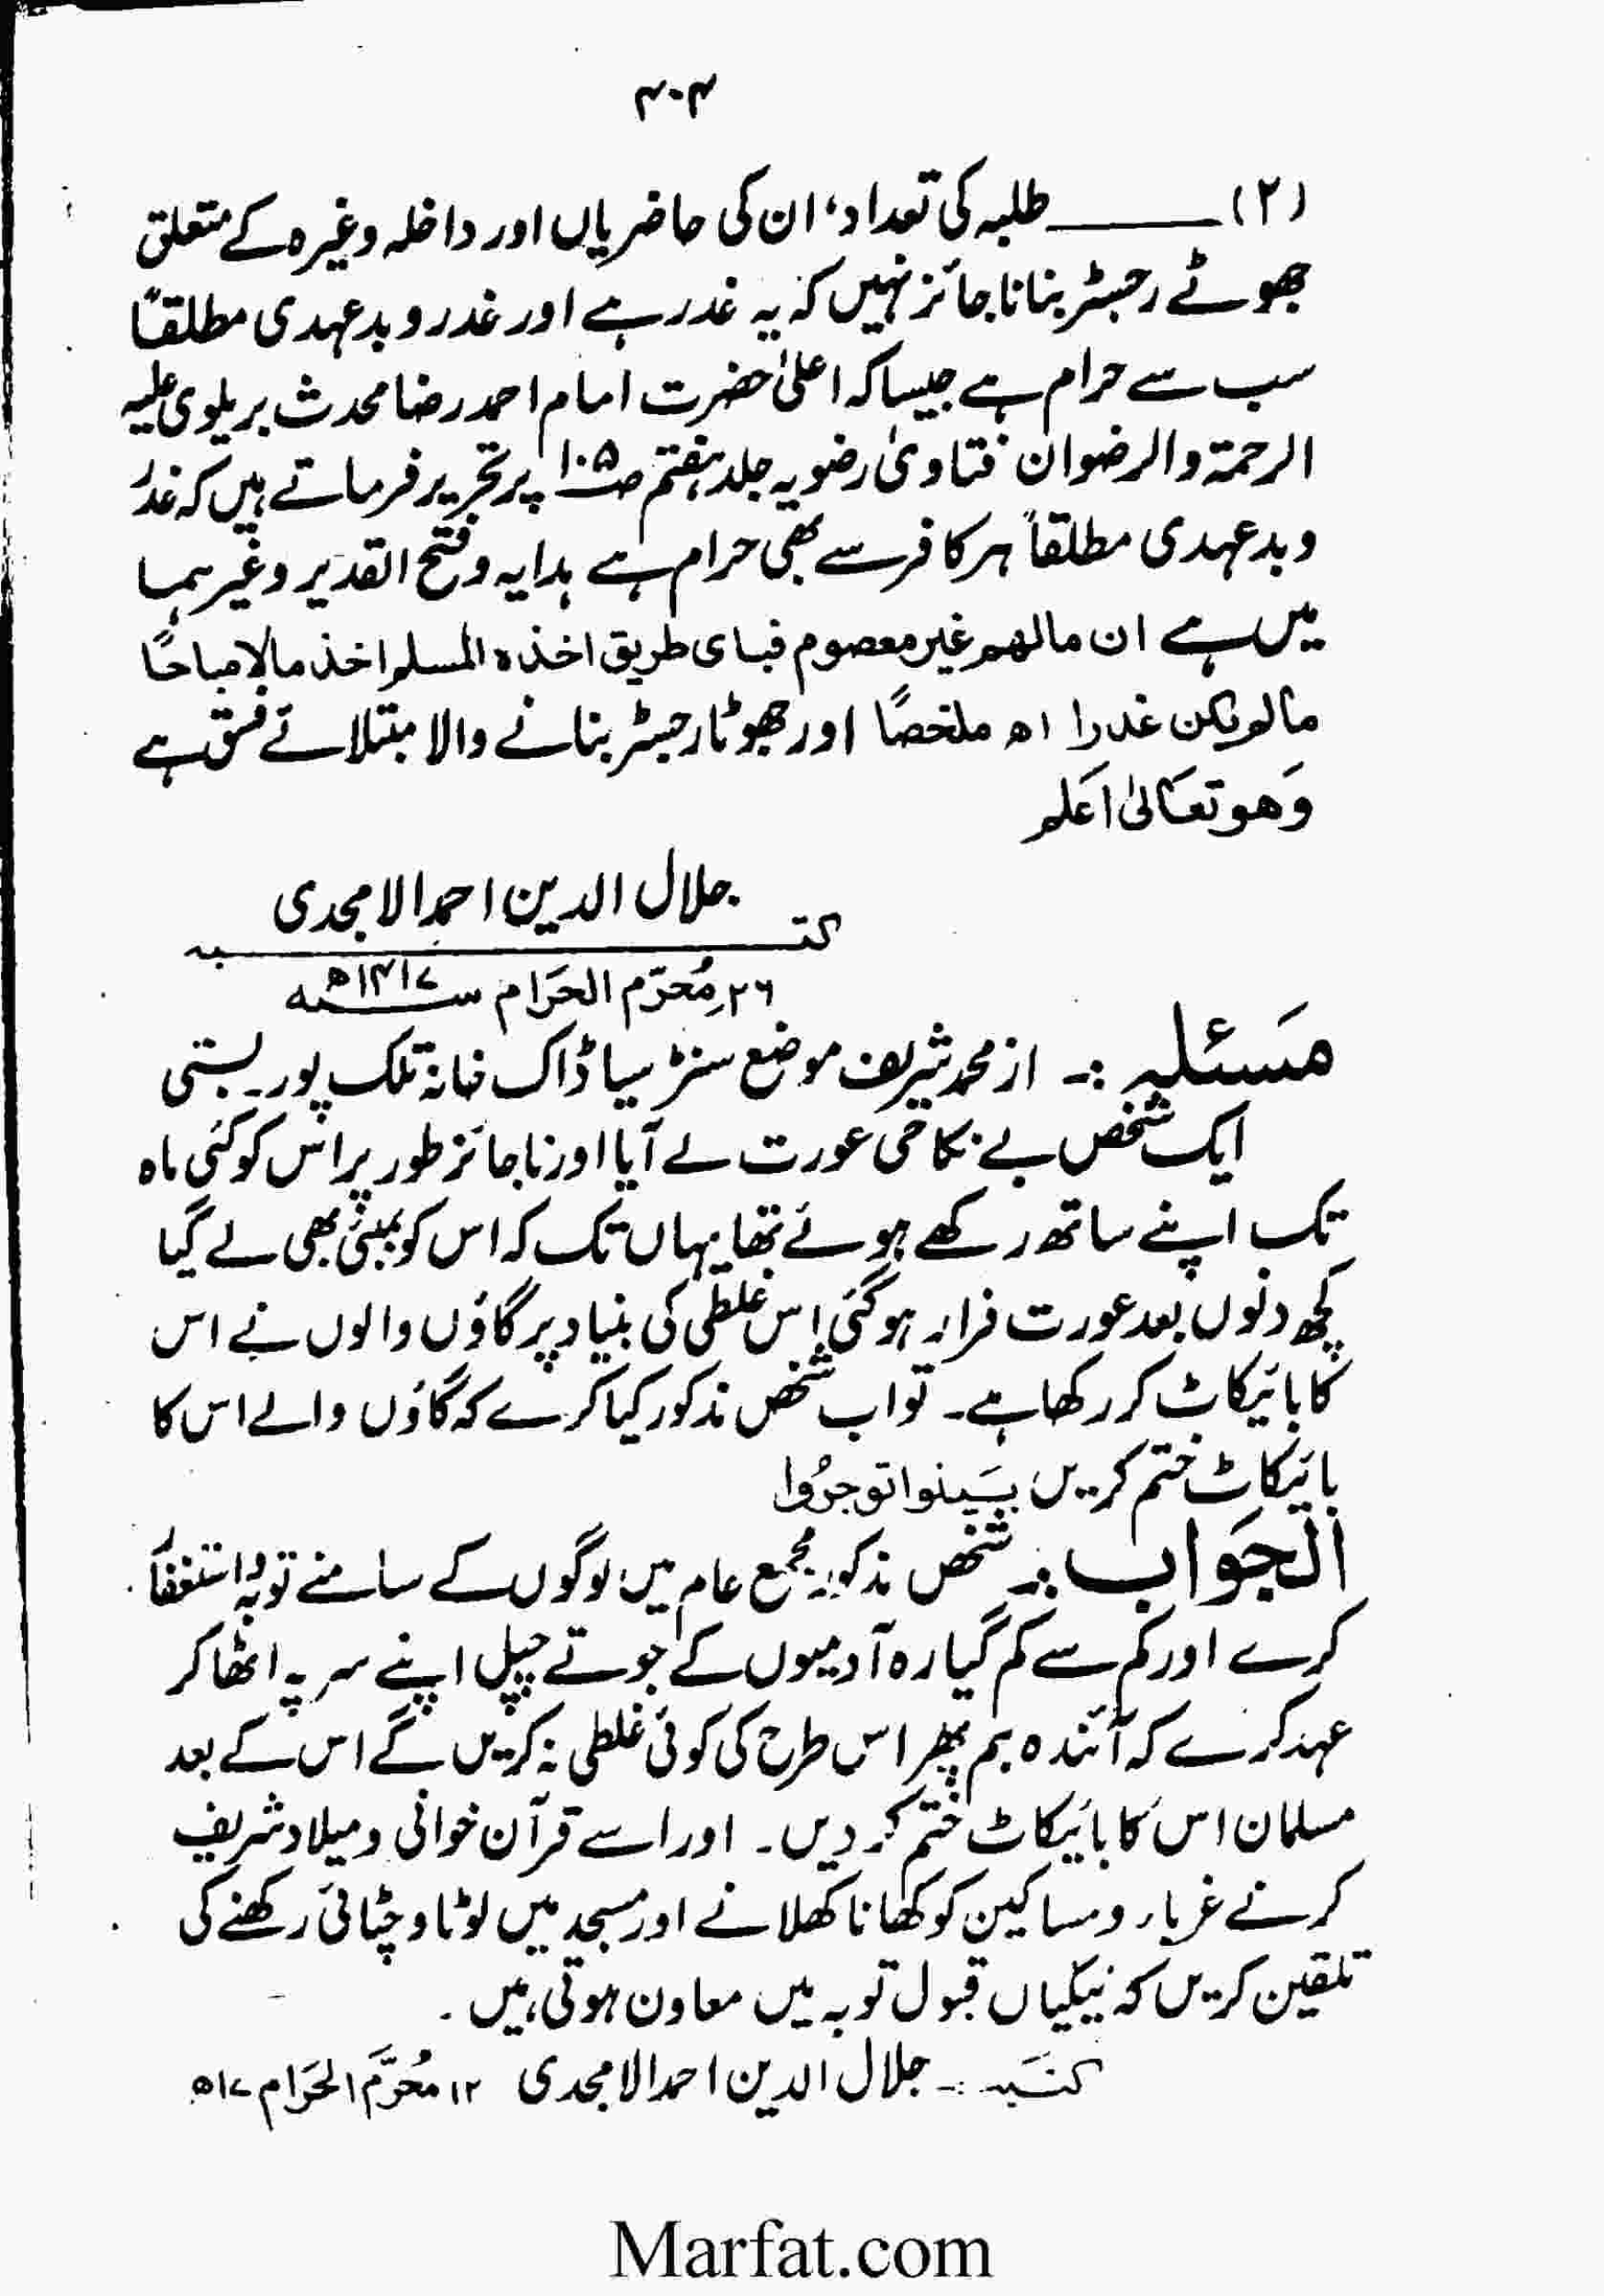 ۴۰۴
(۲) ــــــ طلبہ کی تعداد، ان کی حاضریاں اور داخلہ وغیرہ کے متعلق
جھوٹے رجسٹر بنانا جائز نہیں کہ یہ غدر ہے اور غدر و بدعہدی مطلقاً
سب سے حرام ہے جیسا کہ اعلیٰ حضرت امام احمد رضا محدث بریلوی علیہ
الرحمۃ والرضوان فتاویٰ رضویہ جلد ہفتم ص۱۰۵ پر تحریر فرماتے ہیں کہ غدر
و بدعہدی مطلقاً ہر کافر سے بھی حرام ہے ہدایہ و فتح القدیر وغیرہما
میں ہے ان مالھم غیر معصوم فبای طریق اخذہ المسلم اخذ مالا مباحًا
مالم یکن غدرا اھ ملخصًا اور جھوٹا رجسٹر بنانے والا مبتلائے فسق ہے
وَھو تعَالیٰ اَعلم
جلال الدین احمد الامجدی
کتبـــــہ
۲۶ مُحرّم الحَرَام ســـنہ ۱۴۱۷ھ
مَسئلہ :۔ از محمد شریف موضع سنڑسیا ڈاک خانہ تلک پور۔ بستی
ایک شخص بے نکاحی عورت لے آیا اور ناجائز طور پر اس کو کئی ماہ
تک اپنے ساتھ رکھے ہوئے تھا یہاں تک کہ اس کو بمبئی بھی لے گیا
کچھ دنوں بعد عورت فرار ہو گئی اس غلطی کی بنیاد پر گاؤں والوں نے اس
کا بائیکاٹ کر رکھا ہے۔ تو اب شخص مذکور کیا کرے کہ گاؤں والے اس کا
بائیکاٹ ختم کریں بَینوا توجرُوا
الجَوَاب :۔ شخص مذکور مجمع عام میں لوگوں کے سامنے توبہ و استغفار
کرے اور کم سے کم گیارہ آدمیوں کے جوتے چپل اپنے سر پہ اٹھا کر
عہد کرے کہ آئندہ ہم پھر اس طرح کی کوئی غلطی نہ کریں گے اس کے بعد
مسلمان اس کا بائیکاٹ ختم کر دیں۔ اور اسے قرآن خوانی و میلاد شریف
کرنے غرباء و مساکین کو کھانا کھلانے اور مسجد میں لوٹا و چٹائی رکھنے کی
تلقین کریں کہ نیکیاں قبول توبہ میں معاون ہوتی ہیں۔
کتَبَہ :۔ جلال الدین احمد الامجدی ۱۲ مُحرَّم الحَرَام ۱۷ھ
Marfat.com